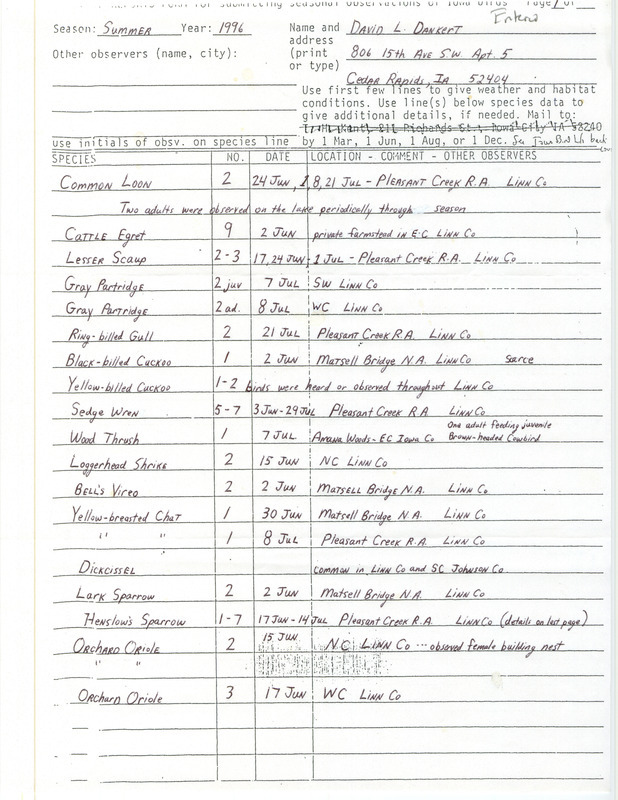 for submitting seasonal observations of Iowa birds Page 1 of
Entered
Season: Summer Year: 1996 Name and David L. Dankert
address
Other observers (name, city): (print 806 15th Ave SW. Apt. 5
or type)
Cedar Rapids, IA 52404
Use first few lines to give weather and habitat
conditions. Use line(s) below species data to
give additional details, if needed. Mail to:
T.H. Kent, 211 Richards St., Iowa City IA 52240
use initials of obsv. on species line by 1 Mar, 1 Jun, 1 Aug, or 1 Dec. See back
SPECIES NO. DATE LOCATION - COMMENT - OTHER OBSERVERS
Common Loon 2 24 Jun, 1, 8, 21 Jul - Pleasant Creek R.A. Linn Co
Two adults were observed on the lake periodically through season
Cattle Egret 9 2 Jun private farmstead in E-C Linn Co
Lesser Scaup 2-3 17, 24 Jun, 1 Jul - Pleasant Creek R.A. Linn Co
Gray Partridge 2 juv 7 Jul SW Linn Co
Gray Partridge 2 ad. 8 Jul WC Linn Co
Ring-billed Gull 2 21 Jul Pleasant Creek R.A. Linn Co
Black-billed Cuckoo 1 2 Jun Matsell Bridge N.A. Linn Co Scarce
Yellow-billed Cuckoo 1-2 birds were heard or observed throughout Linn Co
Sedge Wren 5-7 3 Jun-29 Jul Pleasant Creek R.A Linn Co
One adult feeding juvenile
Wood Thrush 1 7 Jul Amana Woods - EC Iowa Co Brown-headed Cowbird
Loggerhead Shrike 2 15 Jun NC Linn Co
Bell's Vireo 2 2 Jun Matsell Bridge N.A. Linn Co
Yellow-breasted Chat 1 30 Jun Matsell Bridge N.A. Linn Co
" " 1 8 Jul Pleasant Creek R.A. Linn Co
Dickcissel common in Linn Co and SC Johnson Co.
Lark Sparrow 2 2 Jun Matsell Bridge N.A. Linn Co
Henslow's Sparrow 1-7 17 Jun - 14 Jul Pleasant Creek R.A. Linn Co (details on last page)
Orchard Oriole 2 15 Jun NC Linn Co ... observed female building nest
" "
Orchard Oriole 3 17 Jun WC Linn Co